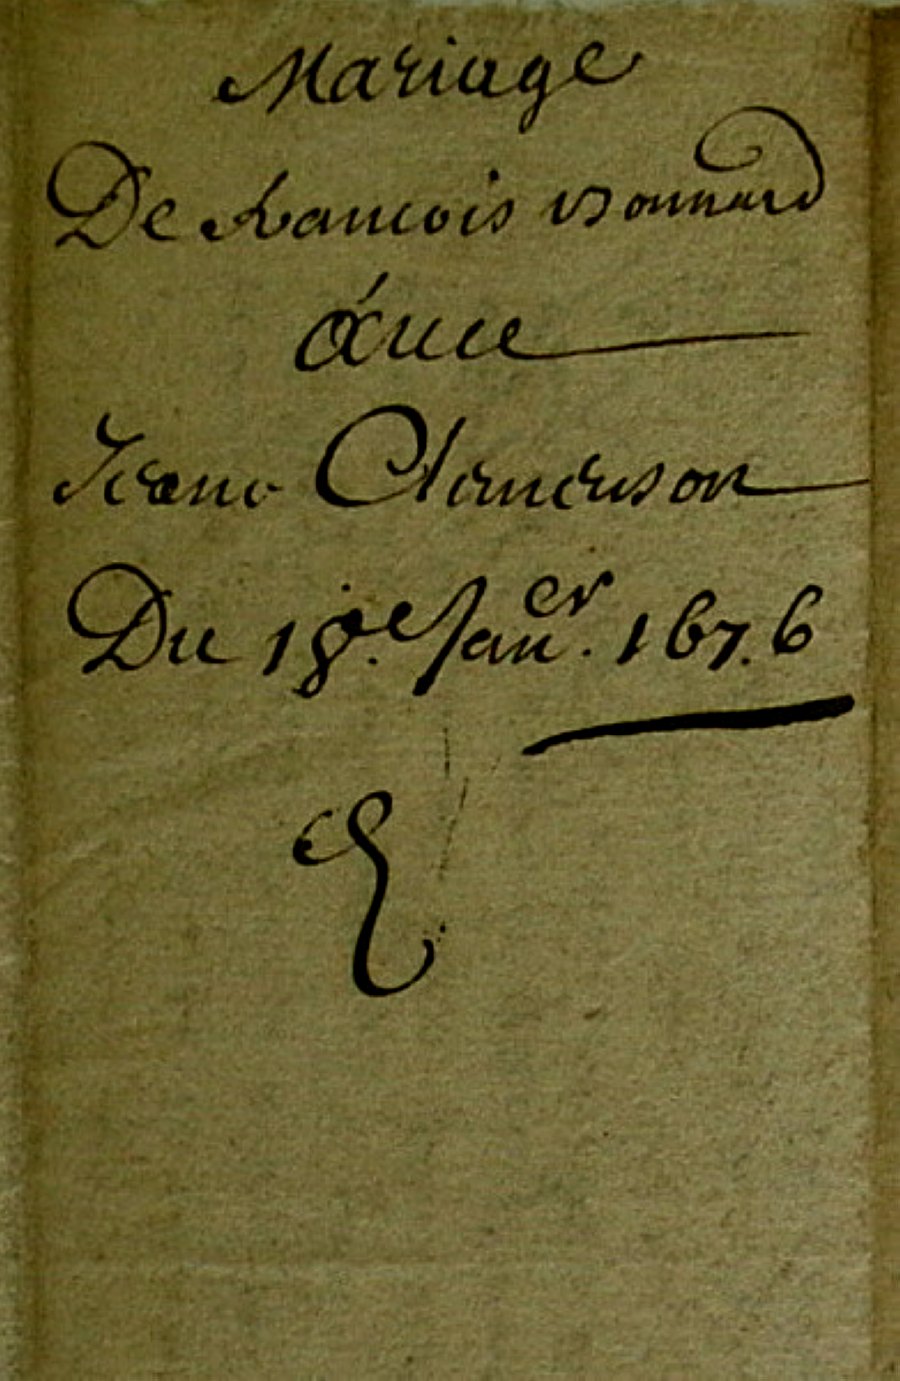 Mariage
De francois Bonnard
auec
Jeane Clemenson
Du 18.e Janu.er 167.6